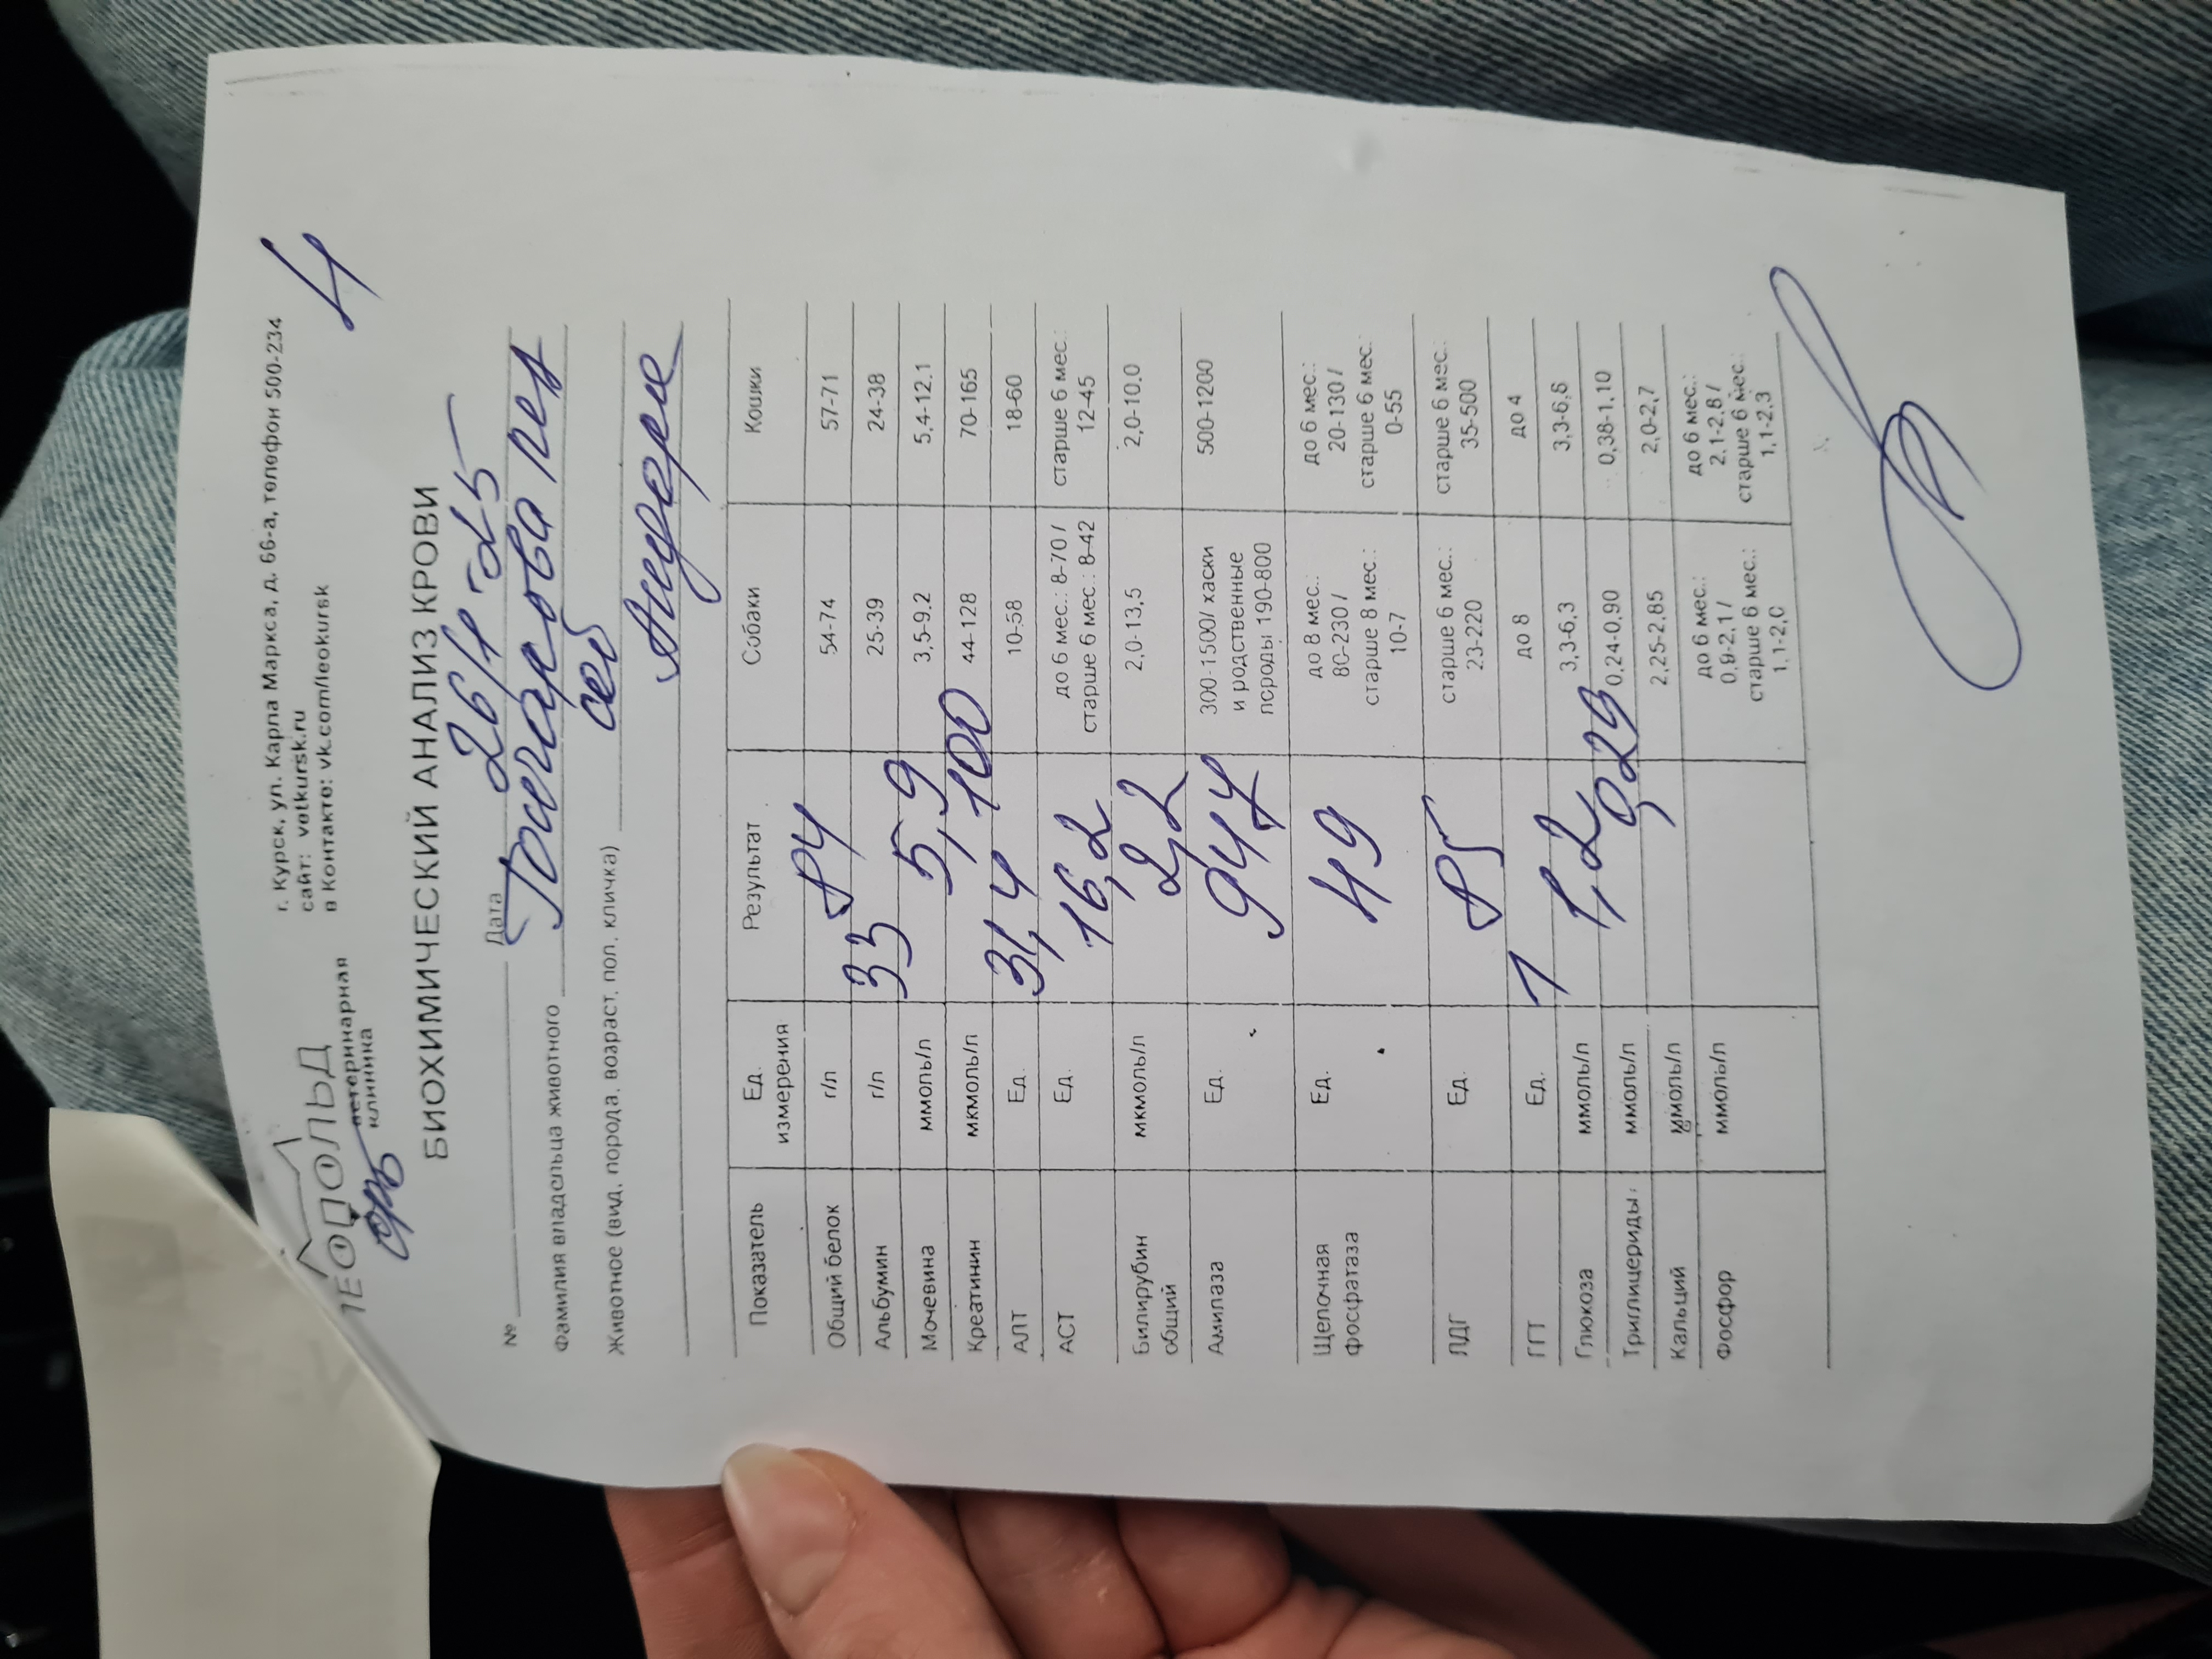 ЛЕОПОЛЬД
ветеринарная
клиника
г. Курск, ул. Карла Маркса, д. 66-а, телефон 500-234
сайт: vetkursk.ru
в Контакте: vk.com/leokursk
БИОХИМИЧЕСКИЙ АНАЛИЗ КРОВИ
№ Дата 26/1-25
Фамилия владельца животного
Животное (вид, порода, возраст, пол, кличка)
Показатель Ед. измерения Результат Собаки Кошки
Общий белок г/л 84 54-74 57-71
Альбумин г/л 33 25-39 24-38
Мочевина ммоль/л 5,9 3,5-9.2 5,4-12.1
Креатинин мкмоль/л 100 44-128 70-165
АЛТ Ед. 31,4 10-58 18-60
АСТ Ед. 16,2 до 6 мес.: 8-70 / старше 6 мес.: 8-42 старше 6 мес.: 12-45
Билирубин общий мкмоль/л 2,2 2,0-13,5 2,0-10.0
Амилаза Ед. 944 300-1500/ хаски и родственные породы 190-800 500-1200
Щелочная фосфатаза Ед. 49 до 8 мес.: 80-230 / старше 8 мес.: 10-7 до 6 мес.: 20-130 / старше 6 мес.: 0-55
ЛДГ Ед. 85 старше 6 мес.: 23-220 старше 6 мес.: 35-500
ГГТ Ед. 1 до 8 до 4
Глюкоза ммоль/л 1,2 3,3-6,3 3,3-6,8
Триглицериды ммоль/л 0,29 0,24-0,90 0,38-1,10
Кальций ммоль/л 2,25-2,85 2,0-2,7
Фосфор ммоль/л до 6 мес.: 0,9-2,1 / старше 6 мес.: 1,1-2,0 до 6 мес.: 2,1-2,8 / старше 6 мес.: 1,1-2,3